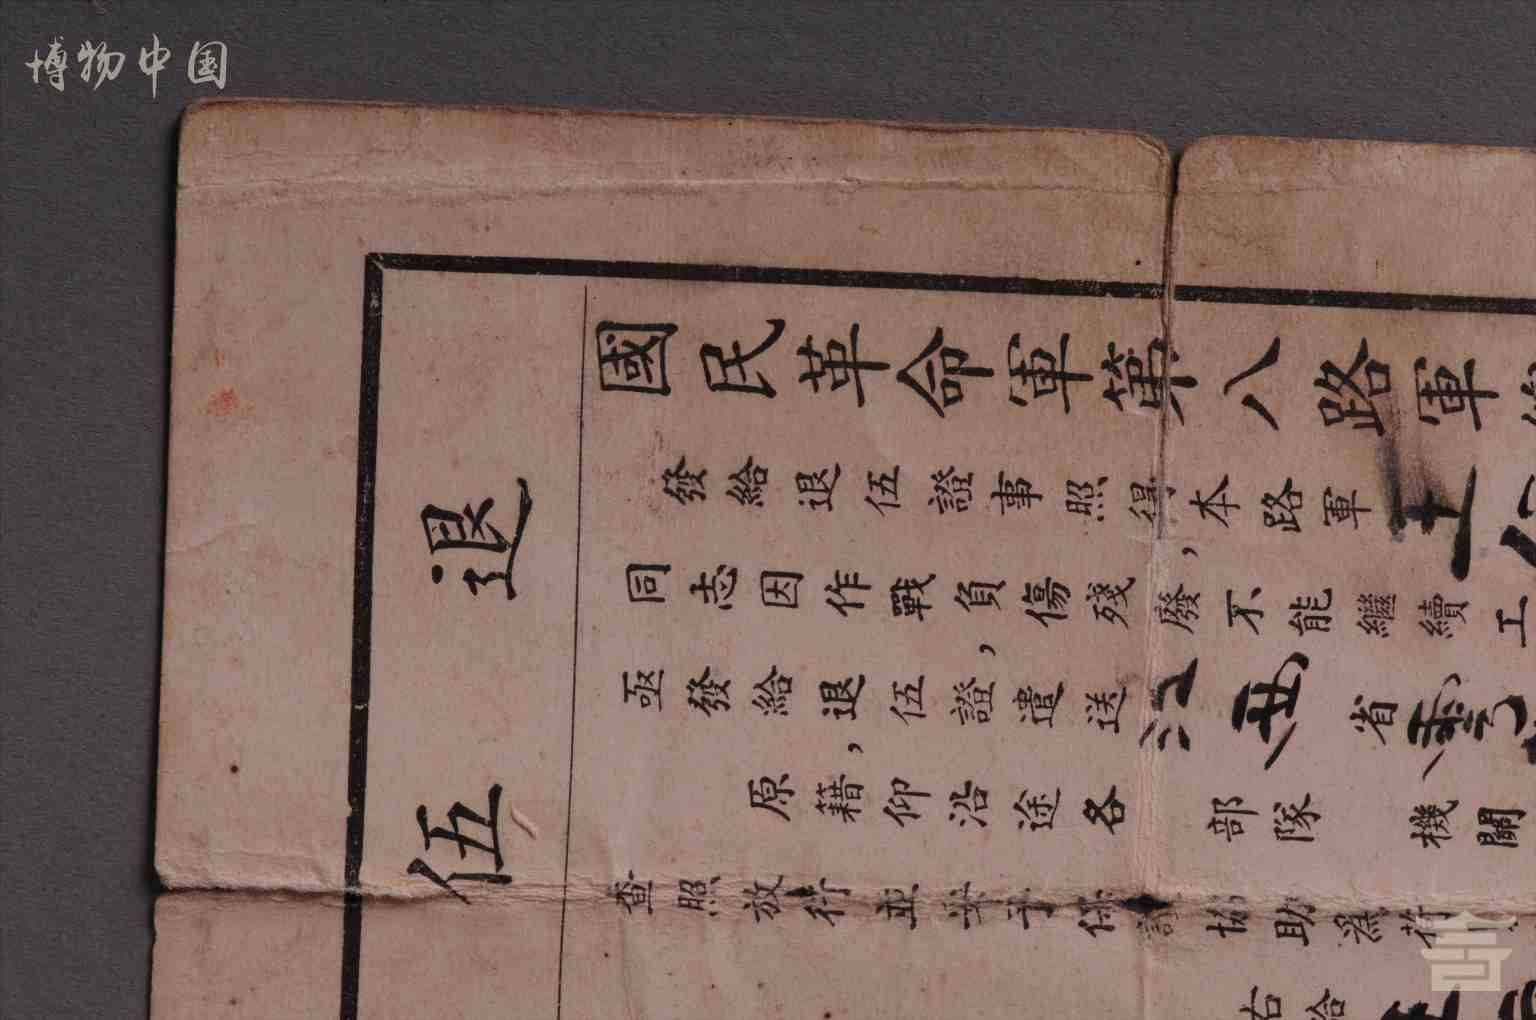 博物中国
退伍
國民革命軍第八路軍
發給退伍證事照得本路軍
同志因作戰負傷殘廢,不能繼續工
亟發給退伍證,遣送江西省
原籍,仰沿途各部隊機關
查照放行並予保護協助為荷
右給